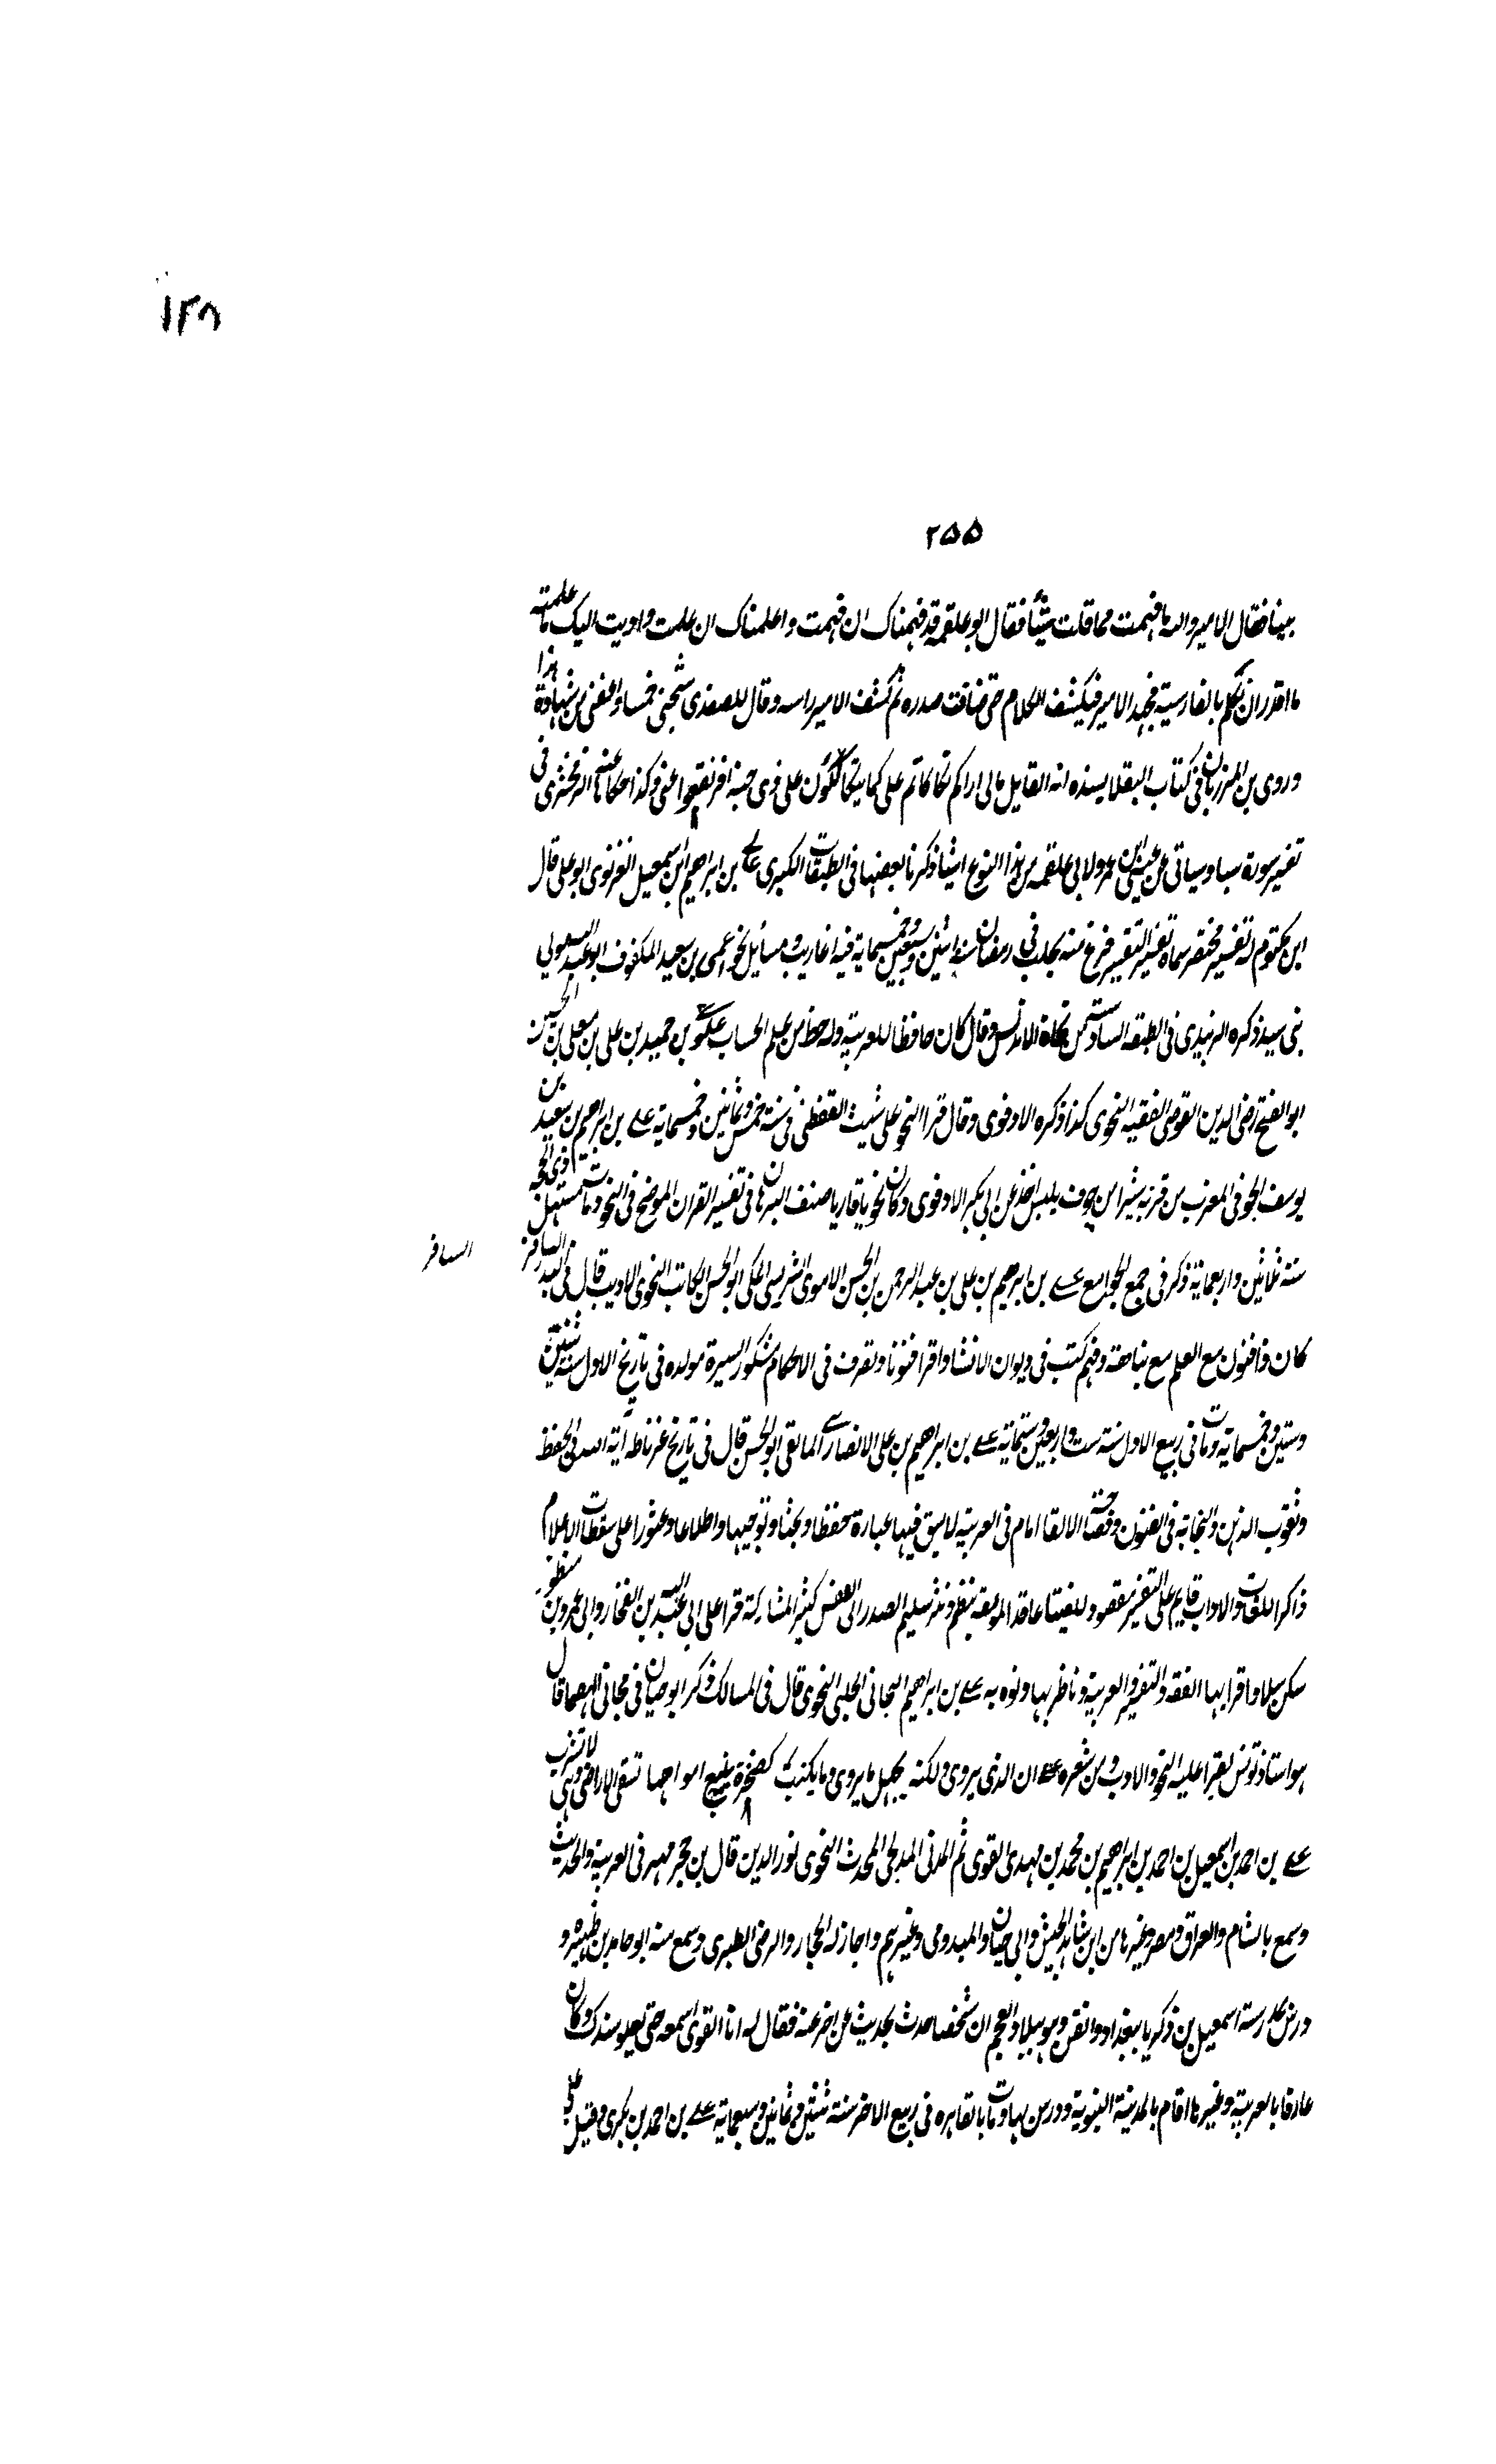 ١٣٨
٢٥٥
بيننا فقال الامير والله ما فهمت مما قلت شيئا فقال ابو علقمة قد فهمناك ان فهمت واعلمناك ان علمت واديت اليك ما علمته
ما اقدر ان تكلم بالفارسية فجهد الامير فيكشف الكلام حتى ضاقت صدره ثم كشف الامير راسه وقال للصغدى شجنى خمسا واعفنى من شهادة هذا
وروى بن المرزبان فى كتاب الثقلا بسنده انه القايل مالى اراكم تكاكاتم على كما تتكاكؤن على ذى جنة افرنقعوا عنى وكذا حكاها عنه الزمخشرى فى
تفسير سورة سبا وسياتى عن عيسى بن عمر ولابى علقمة من هذا النوع اشيا ذكرنا بعضها فى الطبقات الكبرى على بن ابراهيم بن اسمعيل الغزنوى ابو على قال
ابن مكتوم له تفسير مختصر سماه تفسير التفسير فرغ منه بحلب فى رمضان سنة اثنين وسبعين وخمسماية فيه اغاريب ومسائل نحو عمى بن سعيد المكفوف ابو عبد مولى
بنى سيد ذكره الزبيدى فى الطبقة السادسة من نحاة الاندلس وقال كان حافظا للعربية وله حظ من علم الحساب على بن حميد بن على بن معلى بن الحسين
ابو الفتح رضى الدين القوصى الفقيه النحوى كذا ذكره الادفوى وقال قرا النحو على شيث القفطى فى سنة خمس وثمانين وخمسماية على بن ابراهيم بن سعيد بن
يوسف الحوفى المعرب من قرية شبرا من حوف بلبيس اخذ عن ابى بكر الادفوى وكان نحويا قاريا صنف البرهان فى تفسير القران الموضح فى النحو ومات مستهل ذى الحجة
سنة ثلثين واربعماية ذكر فى جمع الجوامع على بن ابرهيم بن على بن عبد الرحمن بن الحسن الاموى الشريسى المكى ابو الحسن الكاتب النحوى الاديب قال فى البدر السافر
السافر
كان ذا فنون مع العلم مع نباهة وفهم كتب فى ديوان الانشا واقرا فنونا وتصرف فى الاحكام مشكور السيرة مولده فى تاريخ الاول سنة ثنتين
وستين وخمسماية ومات فى ربيع الاول سنة ست واربعين وستماية على بن ابراهيم بن على الانصارى المالقى ابو الحسن قال فى تاريخ غرناطه آية الله فى الحفظ
وثقوب الذهن والنجابة فى الفنون وفصاحة الالقا امام فى العربية لا يسبق فيها عبارة حفظا وبحثا وتوجيها واطلاعا وعثورا على سقطات الاعلام
ذاكر اللغات والاداب قايم على التفسير مقصود للفتيا عاقد الموثقة ينظم وينثر سليم الصدر ابى النفس كثير المشاركة قرا على ابى عبد الله بن الفخار وابى عمرو بن منظور
سكن سلا واقرا بها الفقه والتفسير والعربية وناظر بها ونوه به على بن ابراهيم التجانى الحلبى النحوى قال فى المسالك ذكر ابو حيان فى مجانى الهصر قال
هو استاذ تونس يقرا عليه النحو والادب ومن شعره ان الذى يروى ولكنه يجهل ما يروى وما يكتب كصخرة ينبع امواجها تسقى الاراضى وهى لا تشرب
على بن احمد بن اسمعيل بن احمد بن ابراهيم بن محمد بن مهدى القوى ثم المدنى المدلجى المحدث النحوى نور الدين قال بن حجر مهر فى العربية والحديث
وسمع بالشام والعراق ومصر وغيرها من ابن شاهد الجيش وابى حيان والميدومى وغيرهم واجاز له الحجار والرضى الطبرى وسمع منه ابو حامد بن ظهيرة و
درس بمدرسة اسمعيل بن ذكريا ببغداد واتفق وهو ببلاد العجم ان شخصا حدث بحديث عن اخر عنه فقال له انا القوى اسمعه حتى يعلو سندك وكان
عارفا بالعربية وغيرها اقام بالمدينة النبوية ودرس بها ومات بالقاهره فى ربيع الاخر سنة ثنتين وثمانين وسبعماية على بن احمد بن بكرى وقيل على